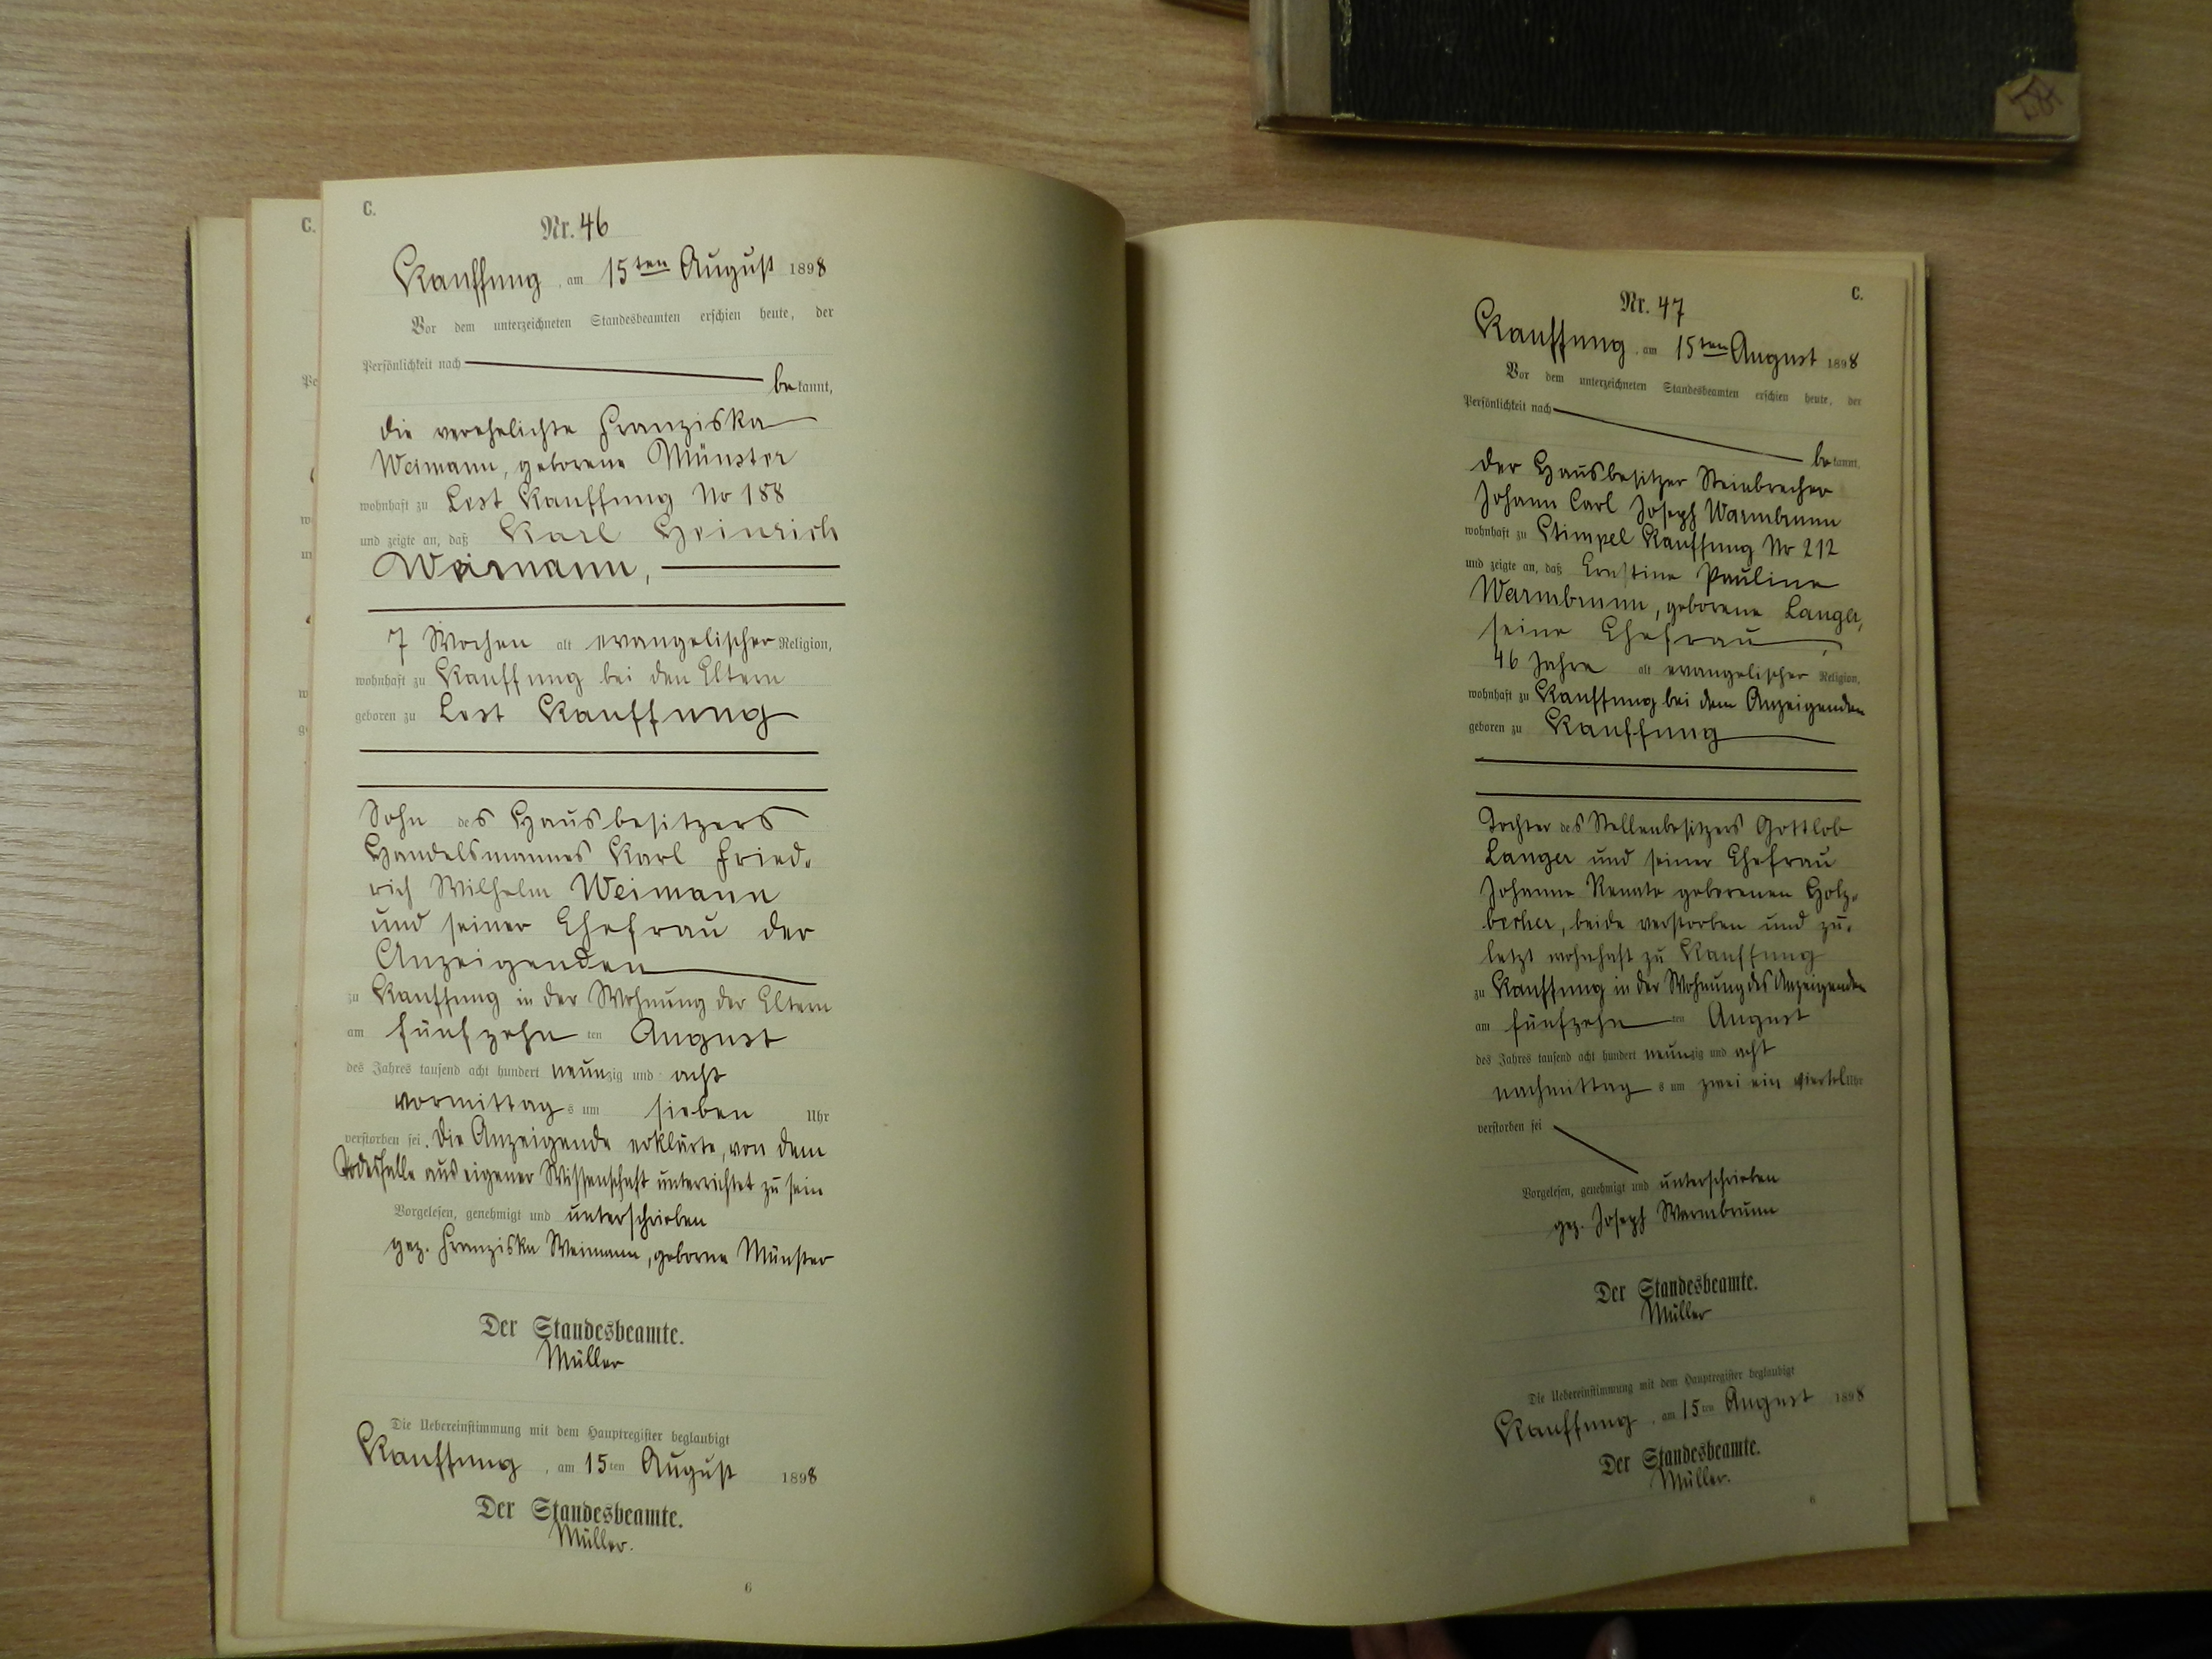 C.
Nr. 46
Kauffung, am 15ten August 1898
Vor dem unterzeichneten Standesbeamten erschien heute, der
Persönlichkeit nach
bekannt,
die verehelichte Franziska
Weimann, geborene Münster
wohnhaft zu Lest Kauffung No 188
und zeigte an, daß Karl Heinrich
Weimann,
7 Wochen alt evangelischer Religion,
wohnhaft zu Kauffung bei den Eltern
geboren zu Lest Kauffung
Sohn des Hausbesitzers
Handelsmannes Karl Fried-
rich Wilhelm Weimann
und seiner Ehefrau der
Anzeigenden
zu Kauffung in der Wohnung der Eltern
am fünfzehnten August
des Jahres tausend acht hundert neunzig und acht
vormittags um sieben Uhr
verstorben sei. Die Anzeigende erklärte, von dem
Todesfalle aus eigener Wissenschaft unterrichtet zu sein
Vorgelesen, genehmigt und unterschrieben
gez. Franziska Weimann, geborne Münster
Der Standesbeamte.
Müller
Die Uebereinstimmung mit dem Hauptregister beglaubigt
Kauffung, am 15ten August 1898
Der Standesbeamte.
Müller.
6
C.
Nr. 47
Kauffung, am 15ten August 1898
Vor dem unterzeichneten Standesbeamten erschien heute, der
Persönlichkeit nach
bekannt,
der Hausbesitzer Steinbrecher
Johann Carl Joseph Warmbrunn
wohnhaft zu Stimpel Kauffung No 212
und zeigte an, daß Ernstine Pauline
Warmbrunn, geborene Langer,
seine Ehefrau,
46 Jahre alt evangelischer Religion,
wohnhaft zu Kauffung bei dem Anzeigenden
geboren zu Kauffung
Tochter des Stellenbesitzers Gottlob
Langer und seiner Ehefrau
Johanne Renate geborenen Holz-
becher, beide verstorben und zu-
letzt wohnhaft zu Kauffung
zu Kauffung in der Wohnung des Anzeigenden
am fünfzehnten August
des Jahres tausend acht hundert neunzig und acht
nachmittags um zwei ein viertel Uhr
verstorben sei
Vorgelesen, genehmigt und unterschrieben
gez. Joseph Warmbrunn
Der Standesbeamte.
Müller
Die Uebereinstimmung mit dem Hauptregister beglaubigt
Kauffung, am 15ten August 1898
Der Standesbeamte.
Müller.
6